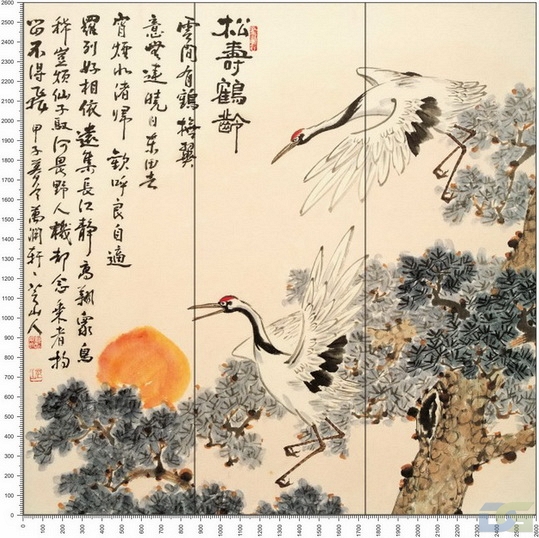 松壽鶴齡
雲間有鶴撫翼
意 遠曉日東田去
宵煙水渚歸 歡呼良自適
羅列好相依遠集長江靜高翔眾鳥
稀豈煩仙子馭何畏野人機却念乘者拘
留不得飛 甲子 萬澗軒 山人
2600
2500
2400
2300
2200
2100
2000
1900
1800
1700
1600
1500
1400
1300
1200
1100
1000
900
800
700
600
500
400
300
200
100
0
0 100 200 300 400 500 600 700 800 900 1000 1100 1200 1300 1400 1500 1600 1700 1800 1900 2000 2100 2200 2300 2400 2500 2600